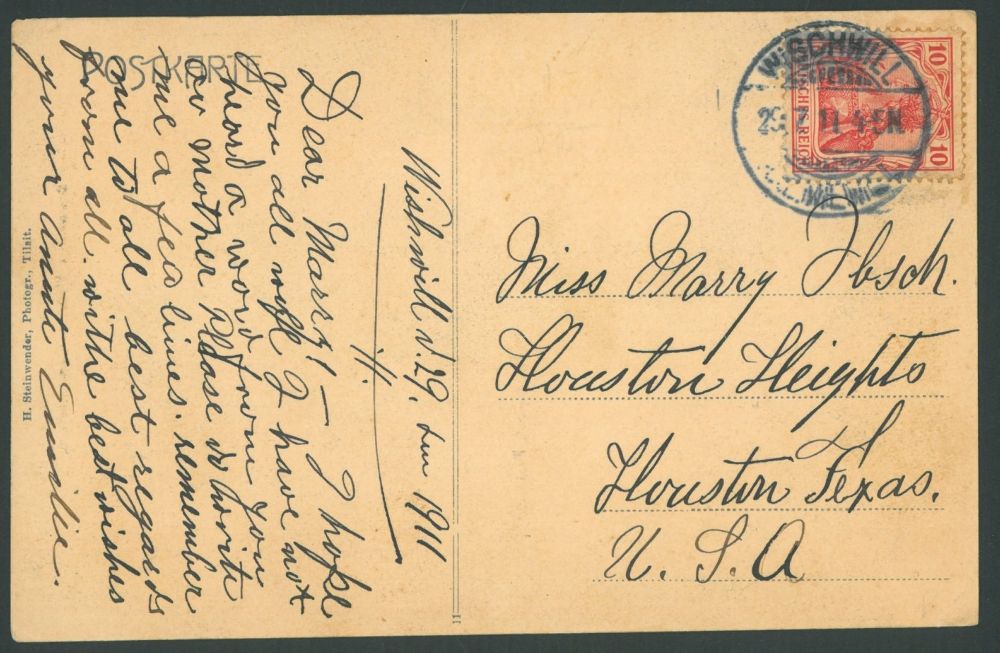 POSTKARTE
Wishwill d. 29. Juni 1911
Dear Marry! – I hope
you all well I have not
heard a word from you
or mother Please do write
me a few lines. remember
me to all best regards
from all. withe best wishes
your Aunte Emilie.
H. Steinwender, Photogr., Tilsit.
11
WISCHWILL
11 4-5N
10
10
DEUTSCHES REICH
Miss Marry Ibsch.
Houston Heights
Houston Texas.
U. S. A